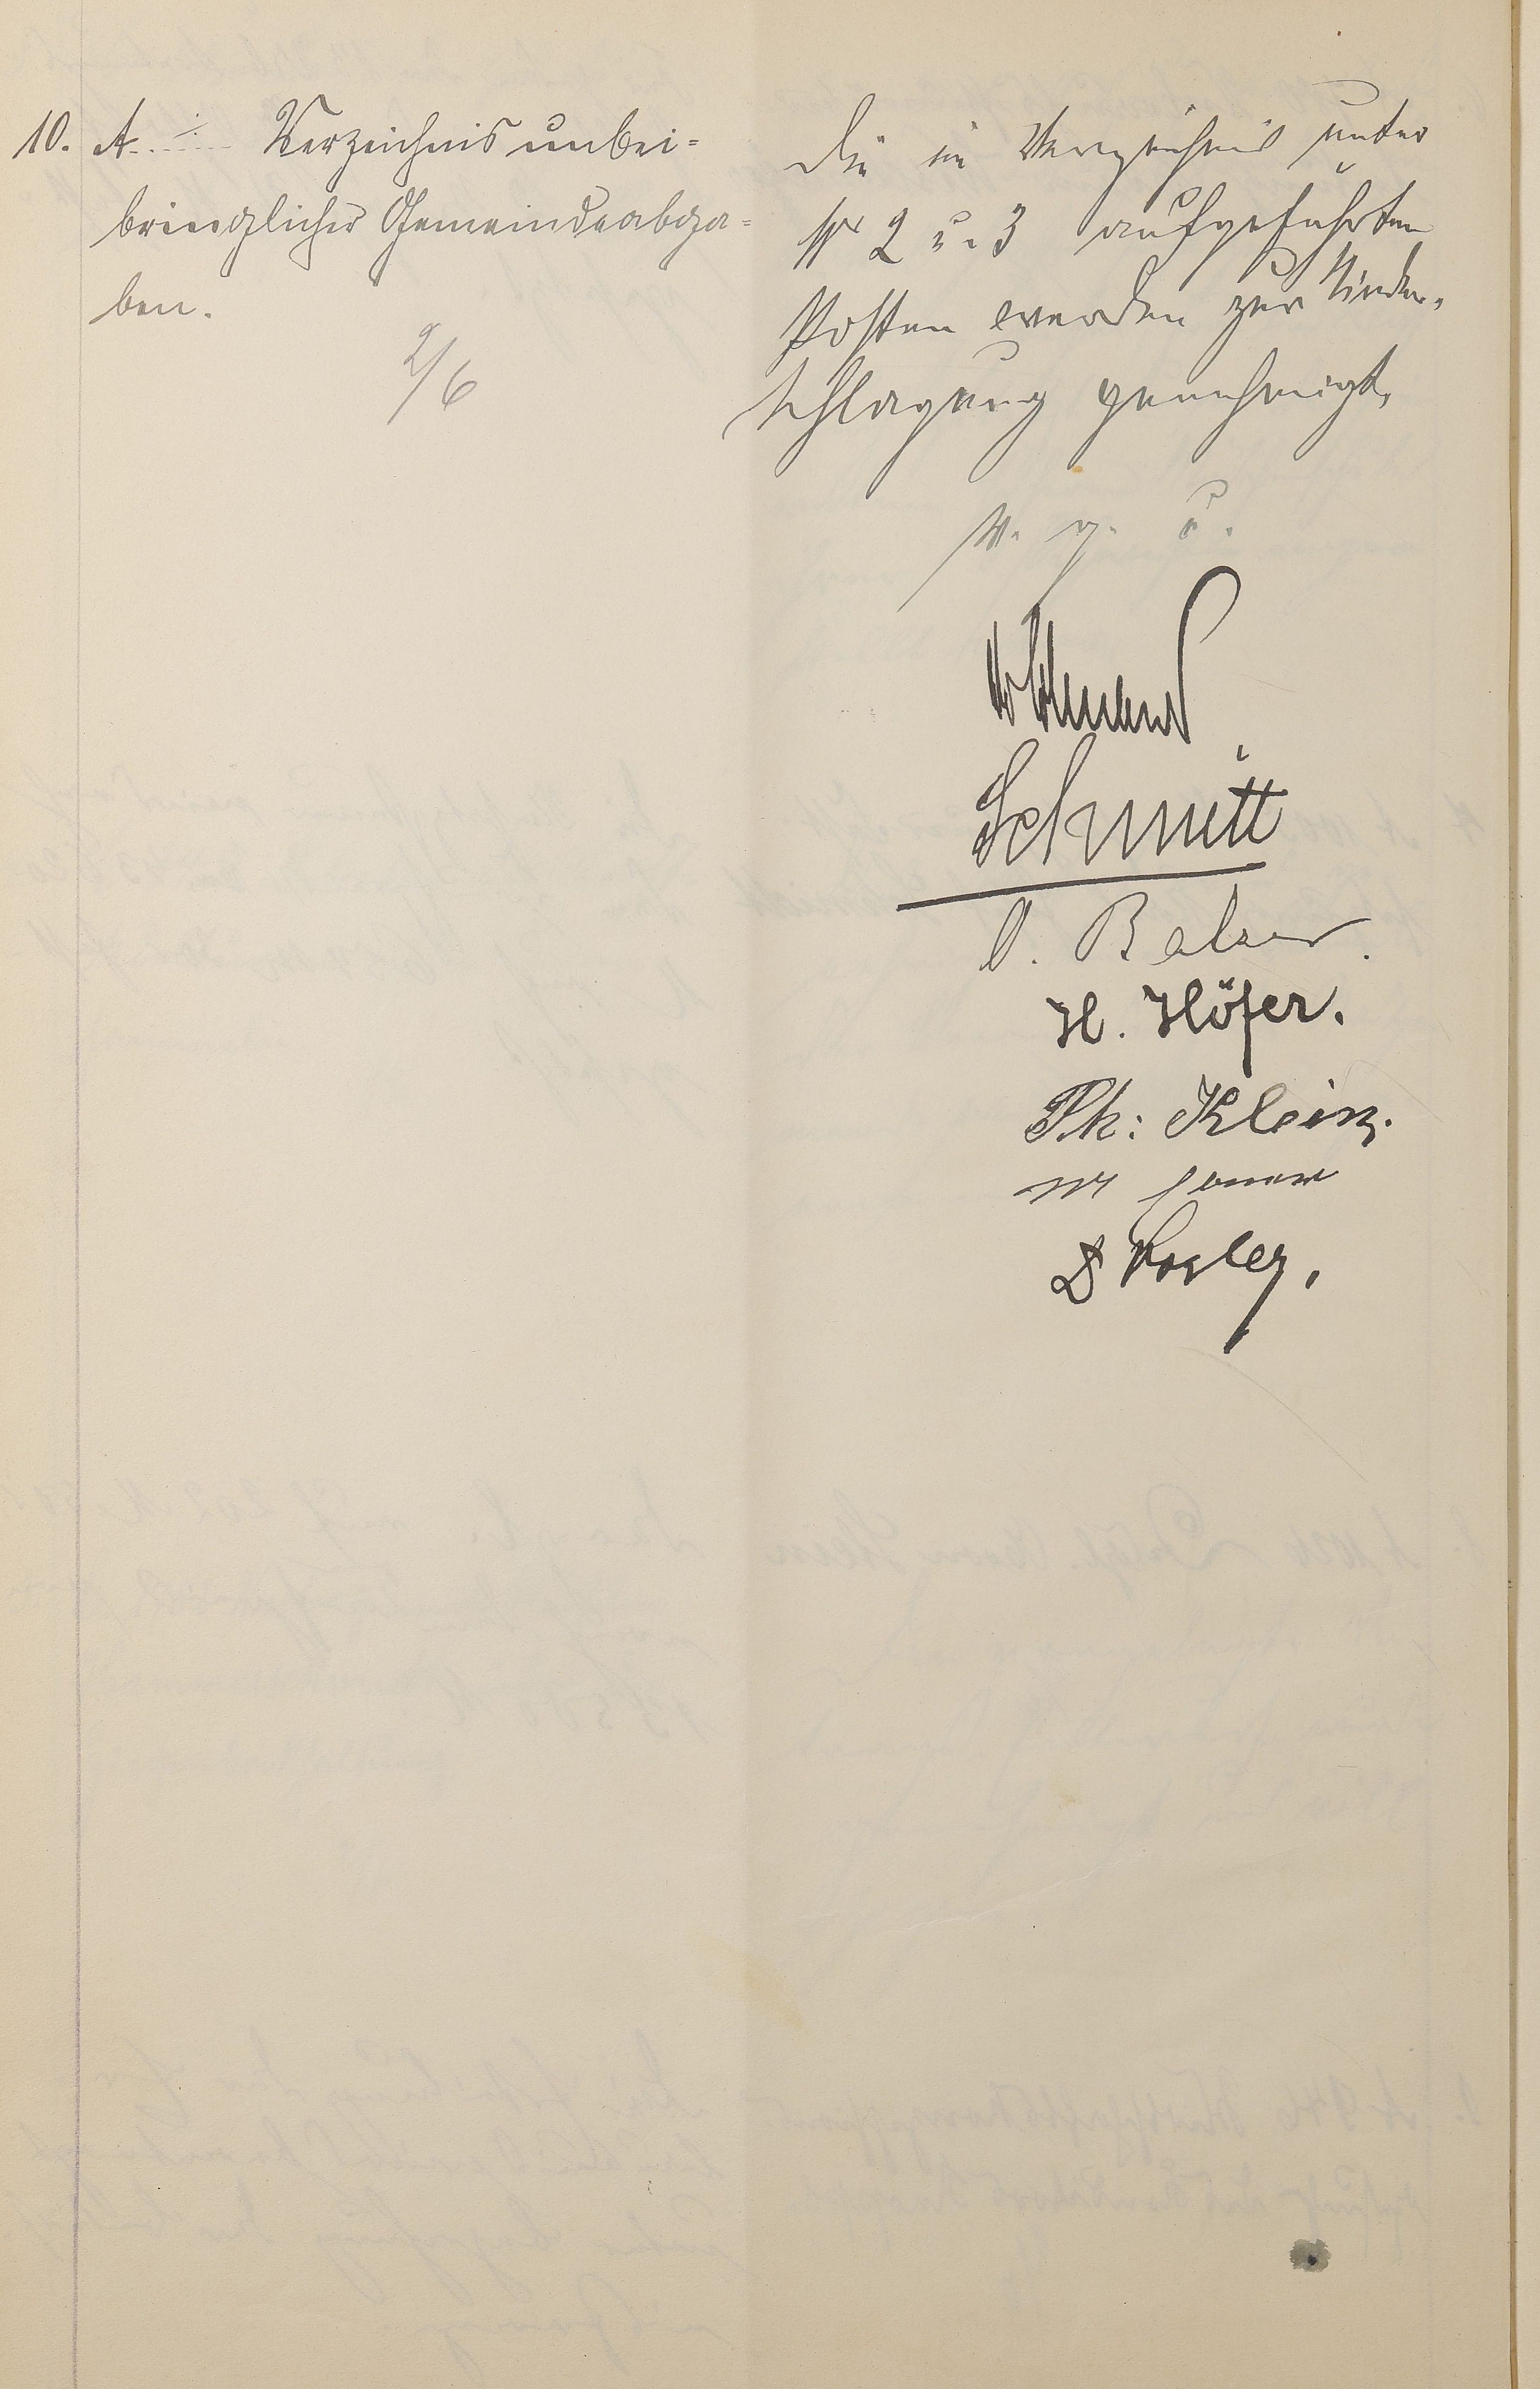 10. A. ..... Verzeichnis unbei-
bringlicher Gemeindeabga-
ben.
2/6
Die im Verzeichnis unter
Nr 2 u. 3 aufgeführten
Posten werden zur Nieder-
schlagung genehmigt.
v. g. u.
Schmitt
Balzer.
H. Höfer.
Ph: Klein.
Vogler,